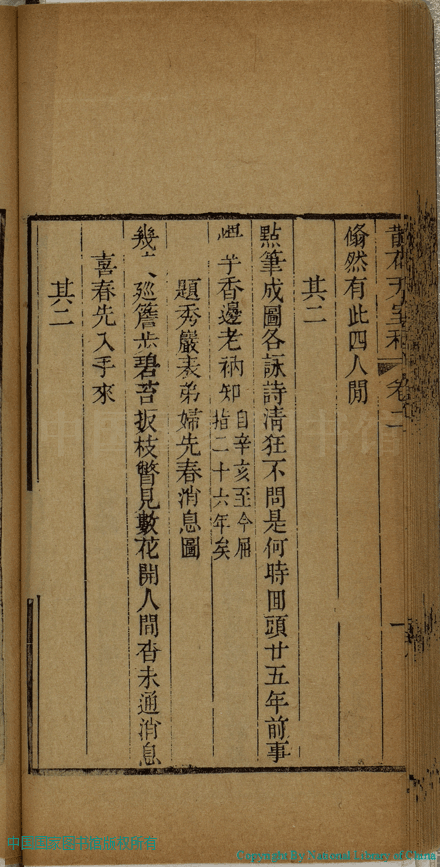 翛然有此四人閒
其二
點筆成圖各詠詩清狂不問是何時回頭廿五年前事
子香邊老衲知自辛亥至今屈
指二十六年矣
題秀巖表弟婦先春消息圖
幾 廵簷步碧苔扳枝瞥見數花開人間杳未通消息
喜春先入手來
其二
中国国家图书馆版权所有
Copyright By National Library of China